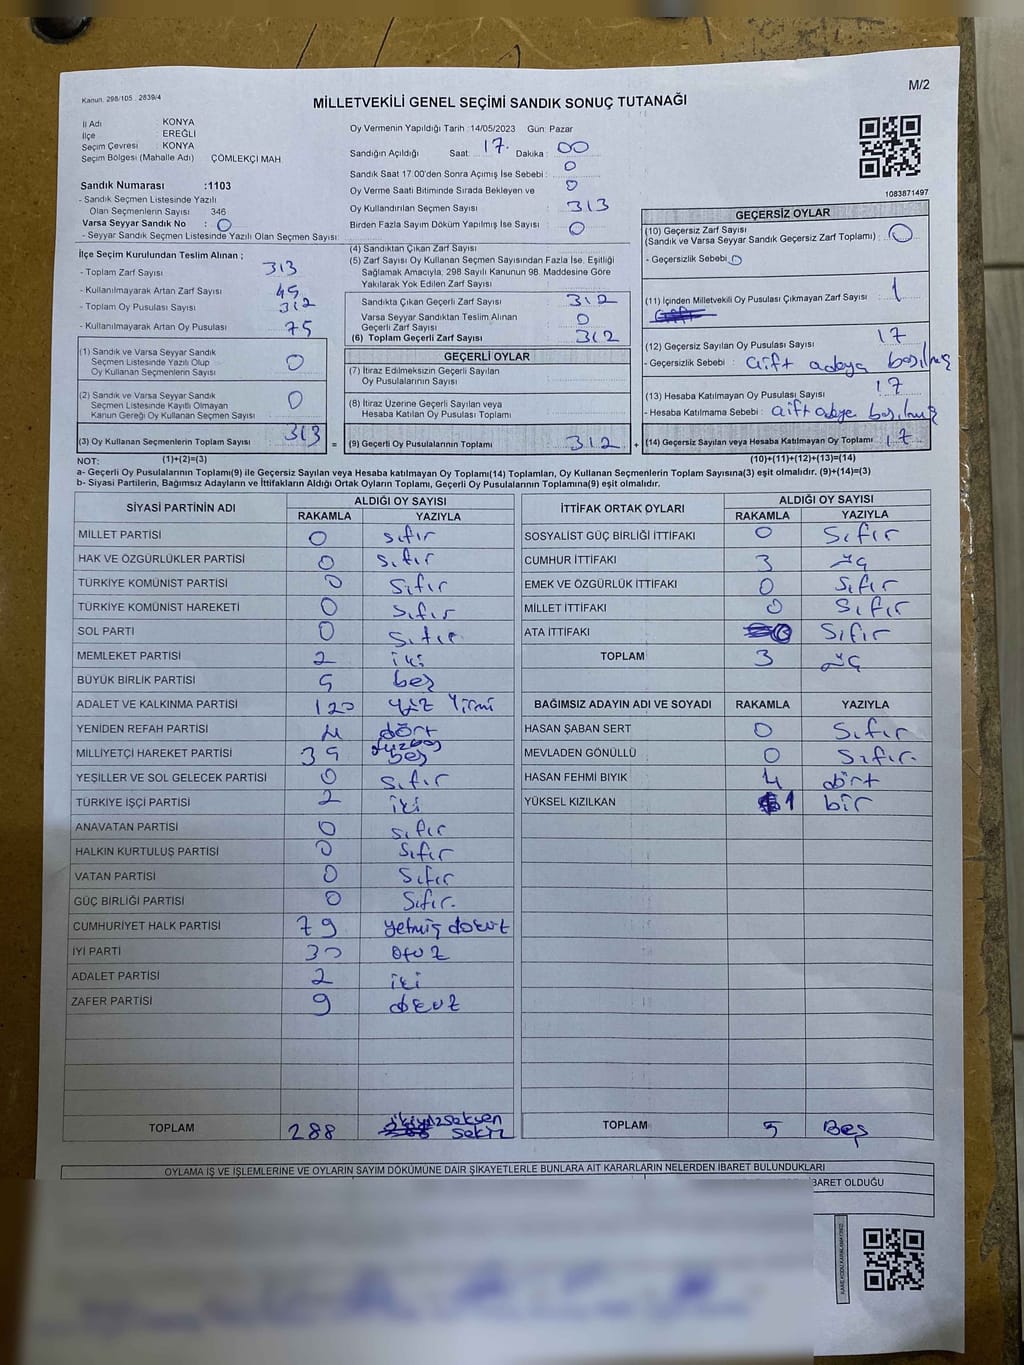 M/2
Kanun. 298/105 . 2839/4
MİLLETVEKİLİ GENEL SEÇİMİ SANDIK SONUÇ TUTANAĞI
İl Adı KONYA
İlçe : EREĞLİ
Seçim Çevresi : KONYA
Seçim Bölgesi (Mahalle Adı) ÇÖMLEKÇİ MAH
Sandık Numarası :1103
- Sandık Seçmen Listesinde Yazılı
Olan Seçmenlerin Sayısı 346
Varsa Seyyar Sandık No : 0
- Seyyar Sandık Seçmen Listesinde Yazılı Olan Seçmen Sayısı:
Oy Vermenin Yapıldığı Tarih :14/05/2023 Gün: Pazar
Sandığın Açıldığı Saat 17. Dakika : 00
Sandık Saat 17.00'den Sonra Açımış İse Sebebi : 0
Oy Verme Saati Bitiminde Sırada Bekleyen ve 0
Oy Kullandırılan Seçmen Sayısı 313
Birden Fazla Sayım Döküm Yapılmış İse Sayısı : 0
1083871497
İlçe Seçim Kurulundan Teslim Alınan ;
- Toplam Zarf Sayısı 313
- Kullanılmayarak Artan Zarf Sayısı 49
- Toplam Oy Pusulası Sayısı 312
- Kullanılmayarak Artan Oy Pusulası 75
(1) Sandık ve Varsa Seyyar Sandık
Seçmen Listesinde Yazılı Olup
Oy Kullanan Seçmenlerin Sayısı 0
(2) Sandık ve Varsa Seyyar Sandık
Seçmen Listesinde Kayıtlı Olmayan
Kanun Gereği Oy Kullanan Seçmen Sayısı 0
(3) Oy Kullanan Seçmenlerin Toplam Sayısı 313 =
(4) Sandıktan Çıkan Zarf Sayısı
(5) Zarf Sayısı Oy Kullanan Seçmen Sayısından Fazla İse, Eşitliği
Sağlamak Amacıyla, 298 Sayılı Kanunun 98. Maddesine Göre
Yakılarak Yok Edilen Zarf Sayısı
Sandıkta Çıkan Geçerli Zarf Sayısı 312
Varsa Seyyar Sandıktan Teslim Alınan
Geçerli Zarf Sayısı 0
(6) Toplam Geçerli Zarf Sayısı 312
GEÇERLİ OYLAR
(7) İtiraz Edilmeksizin Geçerli Sayılan
Oy Pusulalarının Sayısı
(8) İtiraz Üzerine Geçerli Sayılan veya
Hesaba Katılan Oy Pusulası Toplamı
(9) Geçerli Oy Pusulalarının Toplamı 312 +
GEÇERSİZ OYLAR
(10) Geçersiz Zarf Sayısı
(Sandık ve Varsa Seyyar Sandık Geçersiz Zarf Toplamı) : 0
- Geçersizlik Sebebi 0
(11) İçinden Milletvekili Oy Pusulası Çıkmayan Zarf Sayısı 1
(12) Geçersiz Sayılan Oy Pusulası Sayısı 17
- Geçersizlik Sebebi : çift adaya basılmış
(13) Hesaba Katılmayan Oy Pusulası Sayısı 17
- Hesaba Katılmama Sebebi : çift adaya basılmış
(14) Geçersiz Sayılan veya Hesaba Katılmayan Oy Toplamı 17
NOT: (1)+(2)=(3) (10)+(11)+(12)+(13)=(14)
a- Geçerli Oy Pusulalarının Toplamı(9) ile Geçersiz Sayılan veya Hesaba katılmayan Oy Toplamı(14) Toplamları, Oy Kullanan Seçmenlerin Toplam Sayısına(3) eşit olmalıdır. (9)+(14)=(3)
b- Siyasi Partilerin, Bağımsız Adayların ve İttifakların Aldığı Ortak Oyların Toplamı, Geçerli Oy Pusulalarının Toplamına(9) eşit olmalıdır.
SİYASİ PARTİNİN ADI ALDIĞI OY SAYISI
RAKAMLA YAZIYLA
MİLLET PARTİSİ 0 sıfır
HAK VE ÖZGÜRLÜKLER PARTİSİ 0 sıfır
TÜRKİYE KOMÜNİST PARTİSİ 0 sıfır
TÜRKİYE KOMÜNİST HAREKETİ 0 sıfır
SOL PARTİ 0 sıfır
MEMLEKET PARTİSİ 2 iki
BÜYÜK BİRLİK PARTİSİ 5 beş
ADALET VE KALKINMA PARTİSİ 120 yüz Yirmi
YENİDEN REFAH PARTİSİ 4 dört
MİLLİYETÇİ HAREKET PARTİSİ 35 beş
YEŞİLLER VE SOL GELECEK PARTİSİ 0 sıfır
TÜRKİYE İŞÇİ PARTİSİ 2 iki
ANAVATAN PARTİSİ 0 sıfır
HALKIN KURTULUŞ PARTİSİ 0 sıfır
VATAN PARTİSİ 0 sıfır
GÜÇ BİRLİĞİ PARTİSİ 0 sıfır.
CUMHURİYET HALK PARTİSİ 79 yetmiş dokuz
İYİ PARTİ 30 otuz
ADALET PARTİSİ 2 iki
ZAFER PARTİSİ 9 dokuz
TOPLAM 288 ikiyüzseksen sekiz
İTTİFAK ORTAK OYLARI ALDIĞI OY SAYISI
RAKAMLA YAZIYLA
SOSYALİST GÜÇ BİRLİĞİ İTTİFAKI 0 Sıfır
CUMHUR İTTİFAKI 3 üç
EMEK VE ÖZGÜRLÜK İTTİFAKI 0 Sıfır
MİLLET İTTİFAKI 0 Sıfır
ATA İTTİFAKI 0 Sıfır
TOPLAM 3 üç
BAĞIMSIZ ADAYIN ADI VE SOYADI RAKAMLA YAZIYLA
HASAN ŞABAN SERT 0 Sıfır
MEVLADEN GÖNÜLLÜ 0 Sıfır.
HASAN FEHMİ BIYIK 4 dört
YÜKSEL KIZILKAN 1 bir
TOPLAM 5 Beş
OYLAMA İŞ VE İŞLEMLERİNE VE OYLARIN SAYIM DÖKÜMÜNE DAİR ŞİKAYETLERLE BUNLARA AİT KARARLARIN NELERDEN İBARET BULUNDUKLARI
BARET OLDUĞU